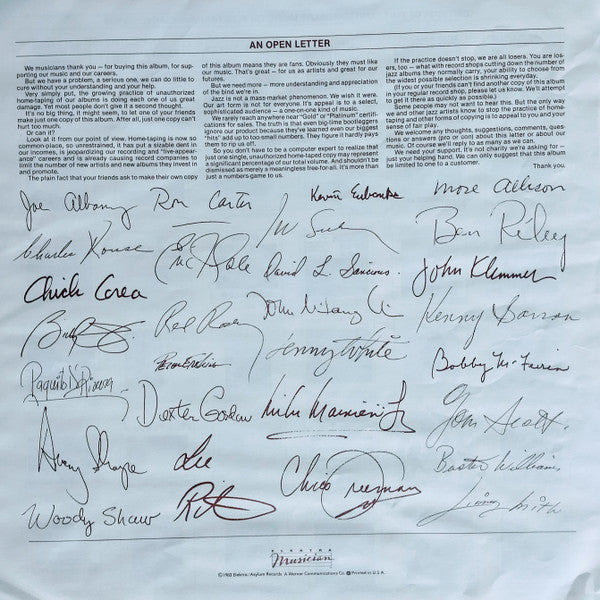 AN OPEN LETTER
We musicians thank you — for buying this album, for sup-
porting our music and our careers.
But we have a problem, a serious one, we can do little to
cure without your understanding and your help.
Very simply put, the growing practice of unauthorized
home-taping of our albums is doing each one of us great
damage. Yet most people don't give it a second thought.
It's no big thing, it might seem, to let one of your friends
make just one copy of this album. After all, just one copy can't
hurt too much.
Or can it?
Look at it from our point of view. Home-taping is now so
common-place, so unrestrained, it has put a sizable dent in
our incomes, is jeopardizing our recording and "live-appear-
ance" careers and is already causing record companies to
limit the number of new artists and new albums they invest in
and promote.
The plain fact that your friends ask to make their own copy
of this album means they are fans. Obviously they must like
our music. That's great — for us as artists and great for our
futures.
But we need more — more understanding and appreciation
of the bind we're in.
Jazz is not a mass market phenomenon. We wish it were.
Our art form is not for everyone. It's appeal is to a select,
sophisticated audience — a one-on-one kind of music.
We rarely reach anywhere near "Gold" or "Platinum" certifi-
cations in sales. The truth is that even big-time bootleggers
ignore our product because they've learned even our biggest
"hits" add up to too-small numbers. They figure it hardly pays
them to rip us off.
So you don't have to be a computer expert to realize that
just one single, unauthorized home-tape copy may represent
a significant percentage of our total volume. And shouldn't be
dismissed as merely a meaningless free-for-all. It's more than
just a numbers game to us.
If the practice doesn't stop, we are all losers. You are los-
ers, too — what with record shops cutting down the number of
jazz albums they normally carry, your ability to choose from
the widest possible selection is shrinking everyday.
(If you or your friends can't find another copy of this album
in your regular record shop, please let us know. We'll attempt
to get it there as quickly as possible.)
Some people may not want to hear this. But the only way
we and other jazz artists know to stop the practice of home-
taping and other forms of copying is to appeal to you and your
sense of fair play.
We welcome any thoughts, suggestions, comments, ques-
tions or answers (pro or con) about this letter or about our
music. Of course we'll reply to as many as we can.
We need your support. It's not charity we're asking for —
just your helping hand. We can only suggest that this album
be limited to one to a customer.
Thank you.
Joe Albany Ron Carter Kevin Eubanks Mose Allison
Charles Rouse Ben Riley
David L. Sancious John Klemmer
Chick Corea
Red Rodney Kenny Barron
Lenny White
Bobby McFerrin
Paquito D'Rivera
Dexter Gordon Mike Mainieri Jr Tom Scott
Avery Sharpe Lee Buster Williams
Woody Shaw Rit Chico Freeman Jimmy Smith
ELEKTRA
Musician
©1983 Elektra/Asylum Records A Warner Communications Co. Printed in U.S.A.